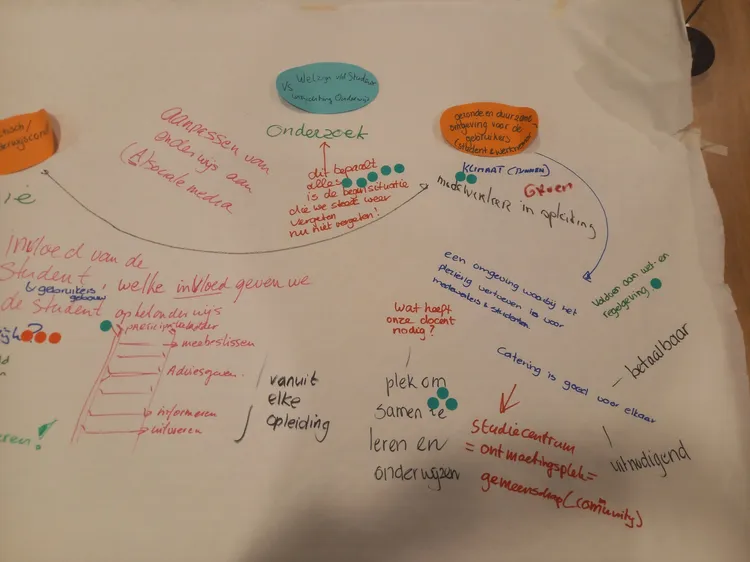 vs Welzijn vd Student
Onderzoek
gezonde en duurzame
omgeving voor de
gebruikers
(student & werknemer)
KLIMAAT (BINNEN)
Groen
medewerkers in opleiding
aanpassen van
onderwijs aan
(A)sociale media
dit bepaalt
alles
is de beginsituatie
die we steeds weer
vergeten
nu niet vergeten!
Invloed van de
Student, welke invloed geven we
gebruikers
gebouw
de student op het onderwijs
participatieladder
meebeslissen
Adviesgeven
informeren
uitvoeren
vanuit
elke
opleiding
een omgeving waarbij het
plezierig vertoeven is voor
medewerkers & studenten
Voldoen aan wet- en
regelgeving
wat heeft
onze docent
nodig?
plek om
samen te
leren en
onderwijzen
Catering is goed voor elkaar
- betaalbaar
uitnodigend
studiecentrum
= ontmoetingsplek =
gemeenschap (community)